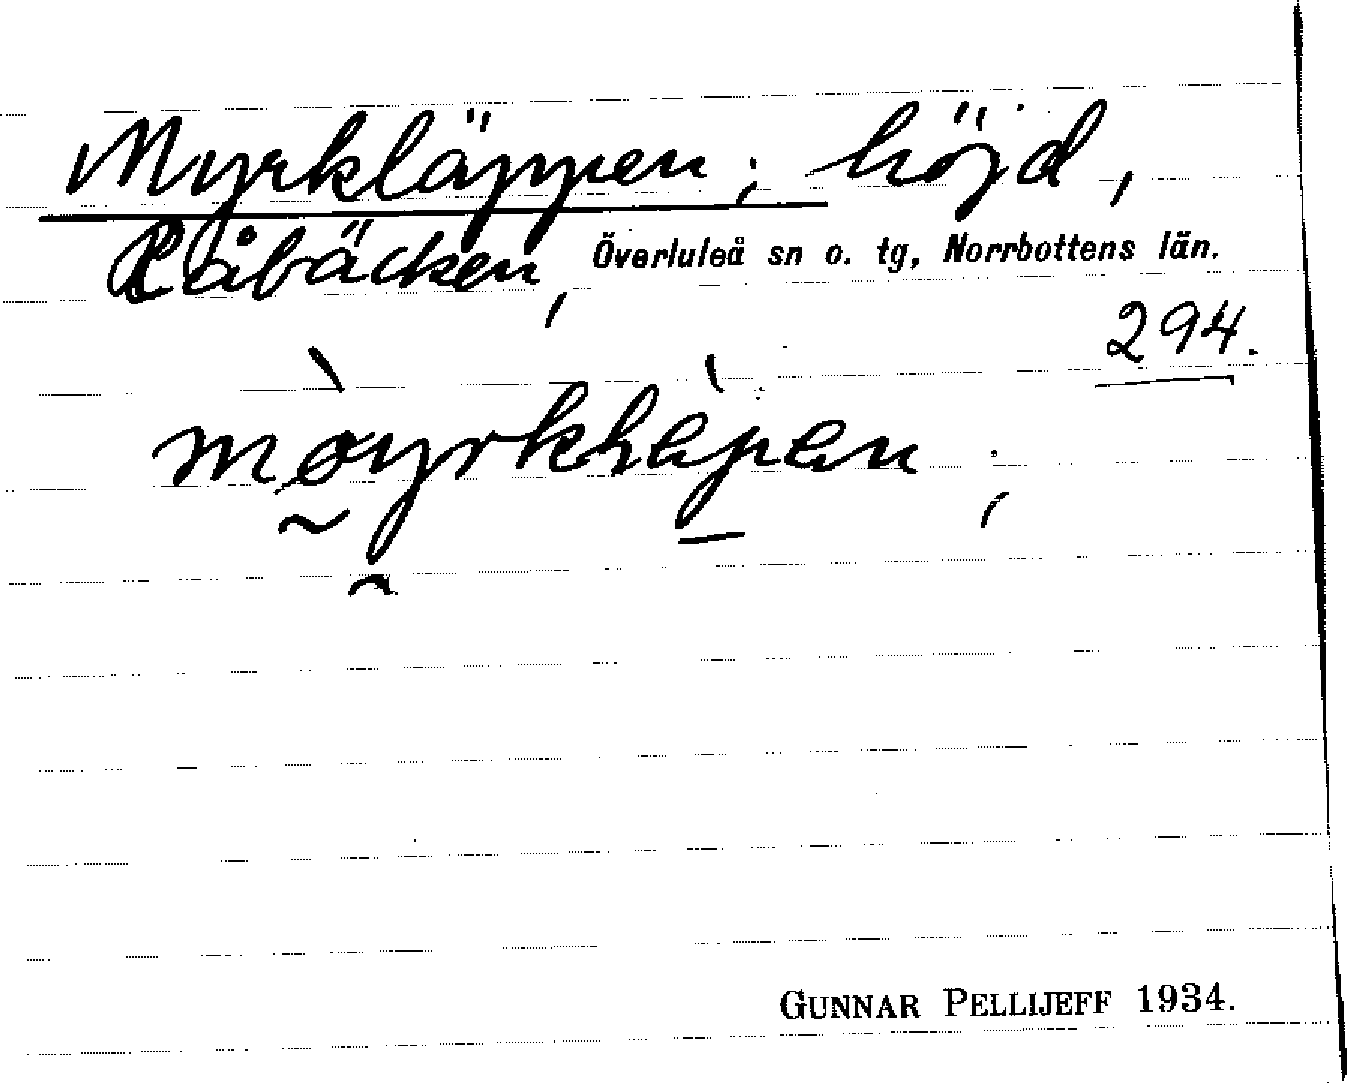 Myrkläppen; höjd,
Råbäcken, Överluleå sn o. tg, Norrbottens län.
294.
GUNNAR PELLIJEFF 1934.